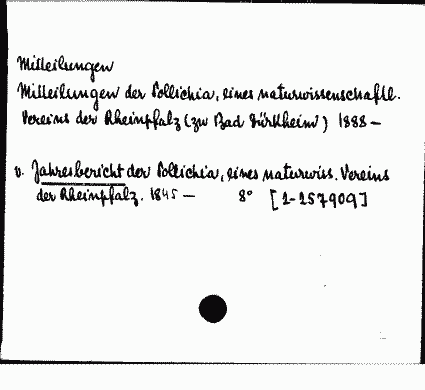 Mitteilungen
Mitteilungen der Pollichia, eines naturwissenschaftl.
Vereins der Rheinpfalz (zu Bad Dürkheim) 1888 —
v. Jahresbericht der Pollichia, eines naturwiss. Vereins
der Rheinpfalz. 1845 — 8° [1-157909]